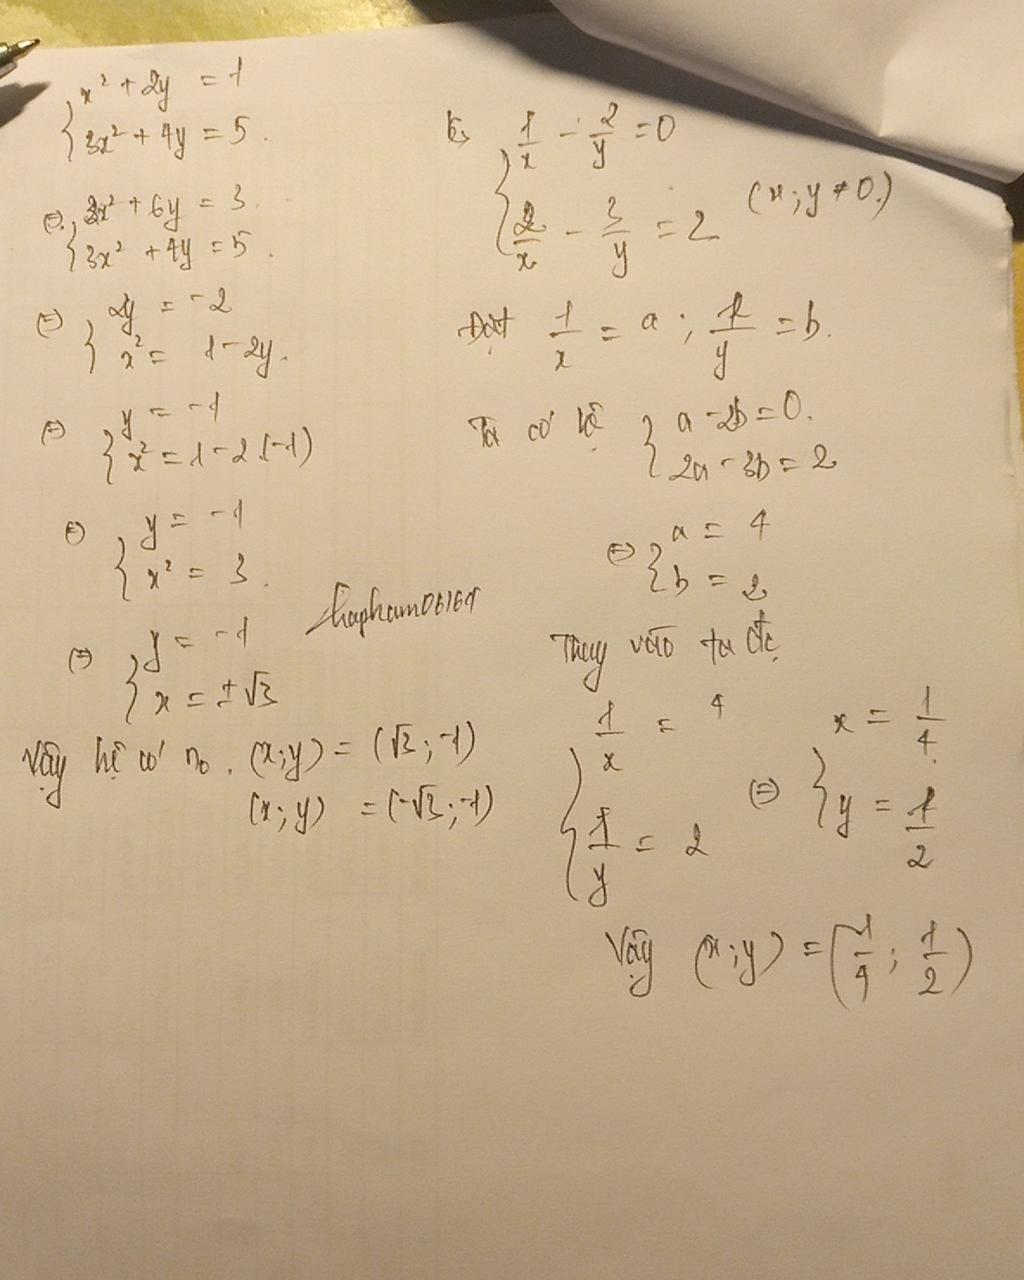 x² + 2y = 1
3x² + 4y = 5.
⇔ 3x² + 6y = 3.
3x² + 4y = 5.
⇔ 2y = -2
x² = 1 - 2y.
⇔ y = -1
x² = 1 - 2.(-1)
⇔ y = -1
x² = 3.
⇔ y = -1
x = ±√3
Vậy hệ có no. (x;y) = (√3;-1)
(x;y) = (-√3;-1)
hapham06161
b, 1/x - 2/y = 0
2/x - 3/y = 2 (x;y ≠ 0.)
Đặt 1/x = a; 1/y = b.
Ta có hệ a - 2b = 0.
2a - 3b = 2
⇔ a = 4
b = 2
Thay vào ta đc
1/x = 4 ⇔ x = 1/4
1/y = 2 y = 1/2
Vậy (x;y) = (1/4; 1/2)